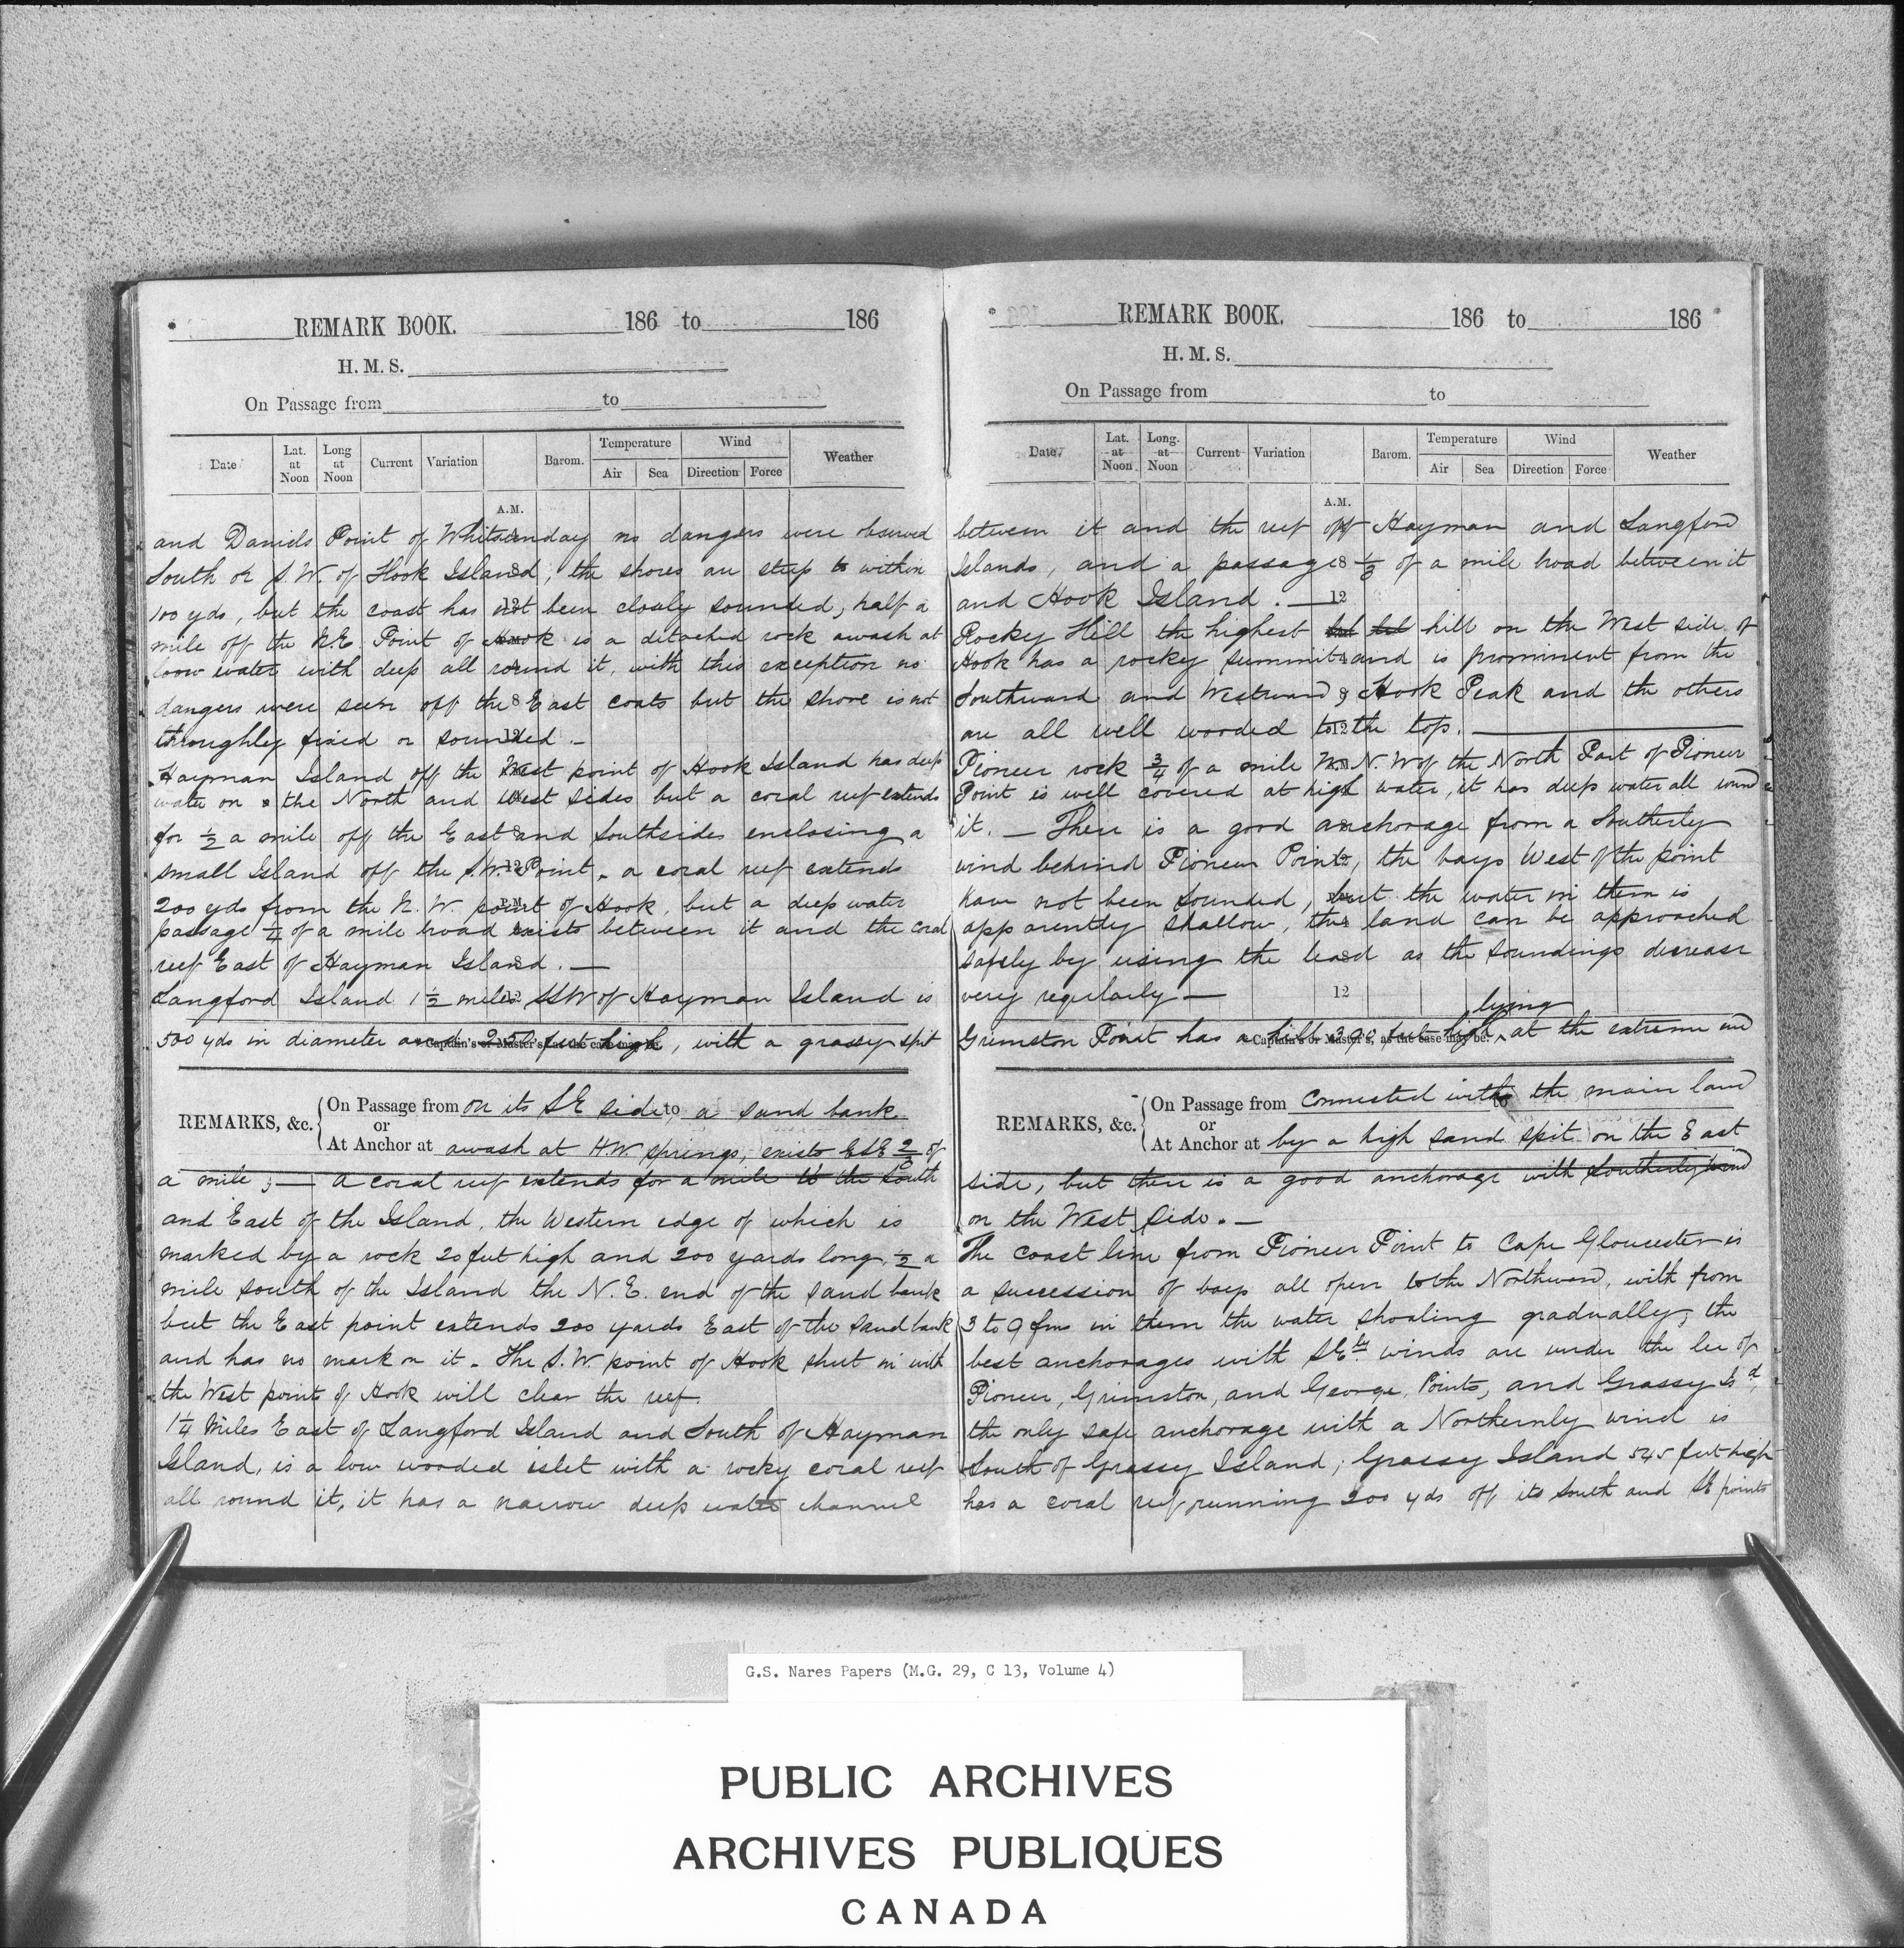 REMARK BOOK. 186 to 186
H. M. S.
On Passage from to
Date Lat. at Noon Long at Noon Current Variation Barom. Temperature Air Sea Wind Direction Force Weather
A.M.
and Daniels Point of Whitsunday no dangers were observed
South or S.W. of Hook Island; the shores are steep to within
100 yds, but the coast has not been closely sounded, half a
mile off the N.E. Point of Hook is a detached rock awash at
loow water with deep all round it, with this exception no
dangers were seen off the East coats but the shore is not
throughly fixed or sounded. —
Hayman Island off the West point of Hook Island has deep
water on the North and West sides but a coral reef extends
for ½ a mile off the East and Southsides enclosing a
small Island off the S.W. Point. a coral reef extends
200 yds from the N. W. point of Hook, but a deep water
passage ¼ of a mile broad exists between it and the coral
reef East of Hayman Island. —
Langford Island 1½ miles SSW of Hayman Island is
500 yds in diameter and 250 feet high, with a grassy spit
Captain's or Master's, as the case may be.
REMARKS, &c. On Passage from on its SE side to, a sand bank
or
At Anchor at awash at H.W. springs, exists ESE 2/3 of
a mile; — a coral reef extends for a mile to the South
and East of the Island, the Western edge of which is
marked by a rock 20 feet high and 200 yards long, ½ a
mile south of the Island the N.E. end of the sand bank
but the East point extends 200 yards East of the sand bank
and has no mark on it. The S.W. point of Hook shut in with
the West point of Hook will clear the reef.
1¼ Miles East of Langford Island and South of Hayman
Island, is a low wooded islet with a rocky coral reef
all round it, it has a narrow deep water channel
REMARK BOOK. 186 to 186
H. M. S.
On Passage from to
Date Lat. at Noon Long. at Noon Current Variation Barom. Temperature Air Sea Wind Direction Force Weather
A.M.
between it and the reef off Hayman and Langford
Islands, and a passage ⅓ of a mile broad between it
and Hook Island. — 12
Rocky Hill the highest hill on the West side of
Hook has a rocky summit and is prominent from the
Southward and Westward, Hook Peak and the others
are all well wooded to the top. —
Pioneer rock ¾ of a mile N.W of the North Part of Pioneer
Point is well covered at high water, it has deep water all round
it. — There is a good anchorage from a Southerly
wind behind Pioneer Point, the bays West of the point
have not been sounded, but the water in them is
apparently shallow, the land can be approached
safely by using the lead as the soundings decrease
very regularly — 12
lying
Grimston Point has a hill 390 feet high, at the extreme end
Captain's or Master's, as the case may be.
REMARKS, &c. On Passage from connected with to the main land
or
At Anchor at by a high sand spit on the East
side, but there is a good anchorage with Southerly wind
on the West side. —
The coast line from Pioneer Point to Cape Gloucester is
a succession of bays all open to the Northward, with from
3 to 9 fms in them the water shoaling gradually, the
best anchorages with SEly winds are under the lee of
Pioneer, Grimston, and George, Points, and Grassy Isd,
the only safe anchorage with a Northernly wind is
South of Grassy Island; Grassy Island 545 feet high
has a coral reef running 200 yds off its South and SE points
G.S. Nares Papers (M.G. 29, C 13, Volume 4)
PUBLIC ARCHIVES
ARCHIVES PUBLIQUES
CANADA